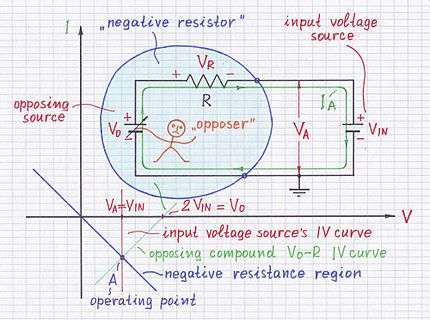 I
„negative resistor"
input voltage
source
+ VR −
R
opposing
source
+
V0
−
„opposer"
IA
VA
+
VIN
−
VA=VIN
2 VIN = V0
V
input voltage source's IV curve
opposing compound V0-R IV curve
negative resistance region
A
operating point